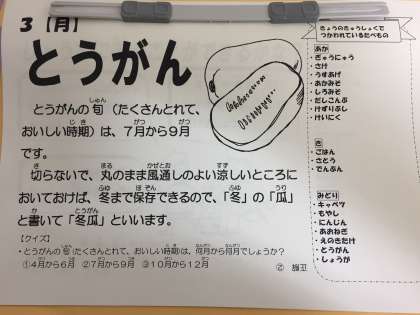 3【月】
とうがん
とうがんの旬（たくさんとれて、
おいしい時期）は、7月から9月
です。
切らないで、丸のまま風通しのよい涼しいところに
おいておけば、冬まで保存できるので、「冬」の「瓜」
と書いて「冬瓜」といいます。
【クイズ】
・とうがんの旬（たくさんとれて、おいしい時期）は、何月から何月でしょうか？
①4月から6月　②7月から9月　③10月から12月
きょうのきゅうしょくで
つかわれているたべもの
あか
・ぎゅうにゅう
・さけ
・うすあげ
・あかみそ
・しろみそ
・だしこんぶ
・けずりぶし
・けいにく
き
・ごはん
・さとう
・でんぷん
みどり
・キャベツ
・もやし
・にんじん
・あおねぎ
・えのきたけ
・とうがん
・しょうが